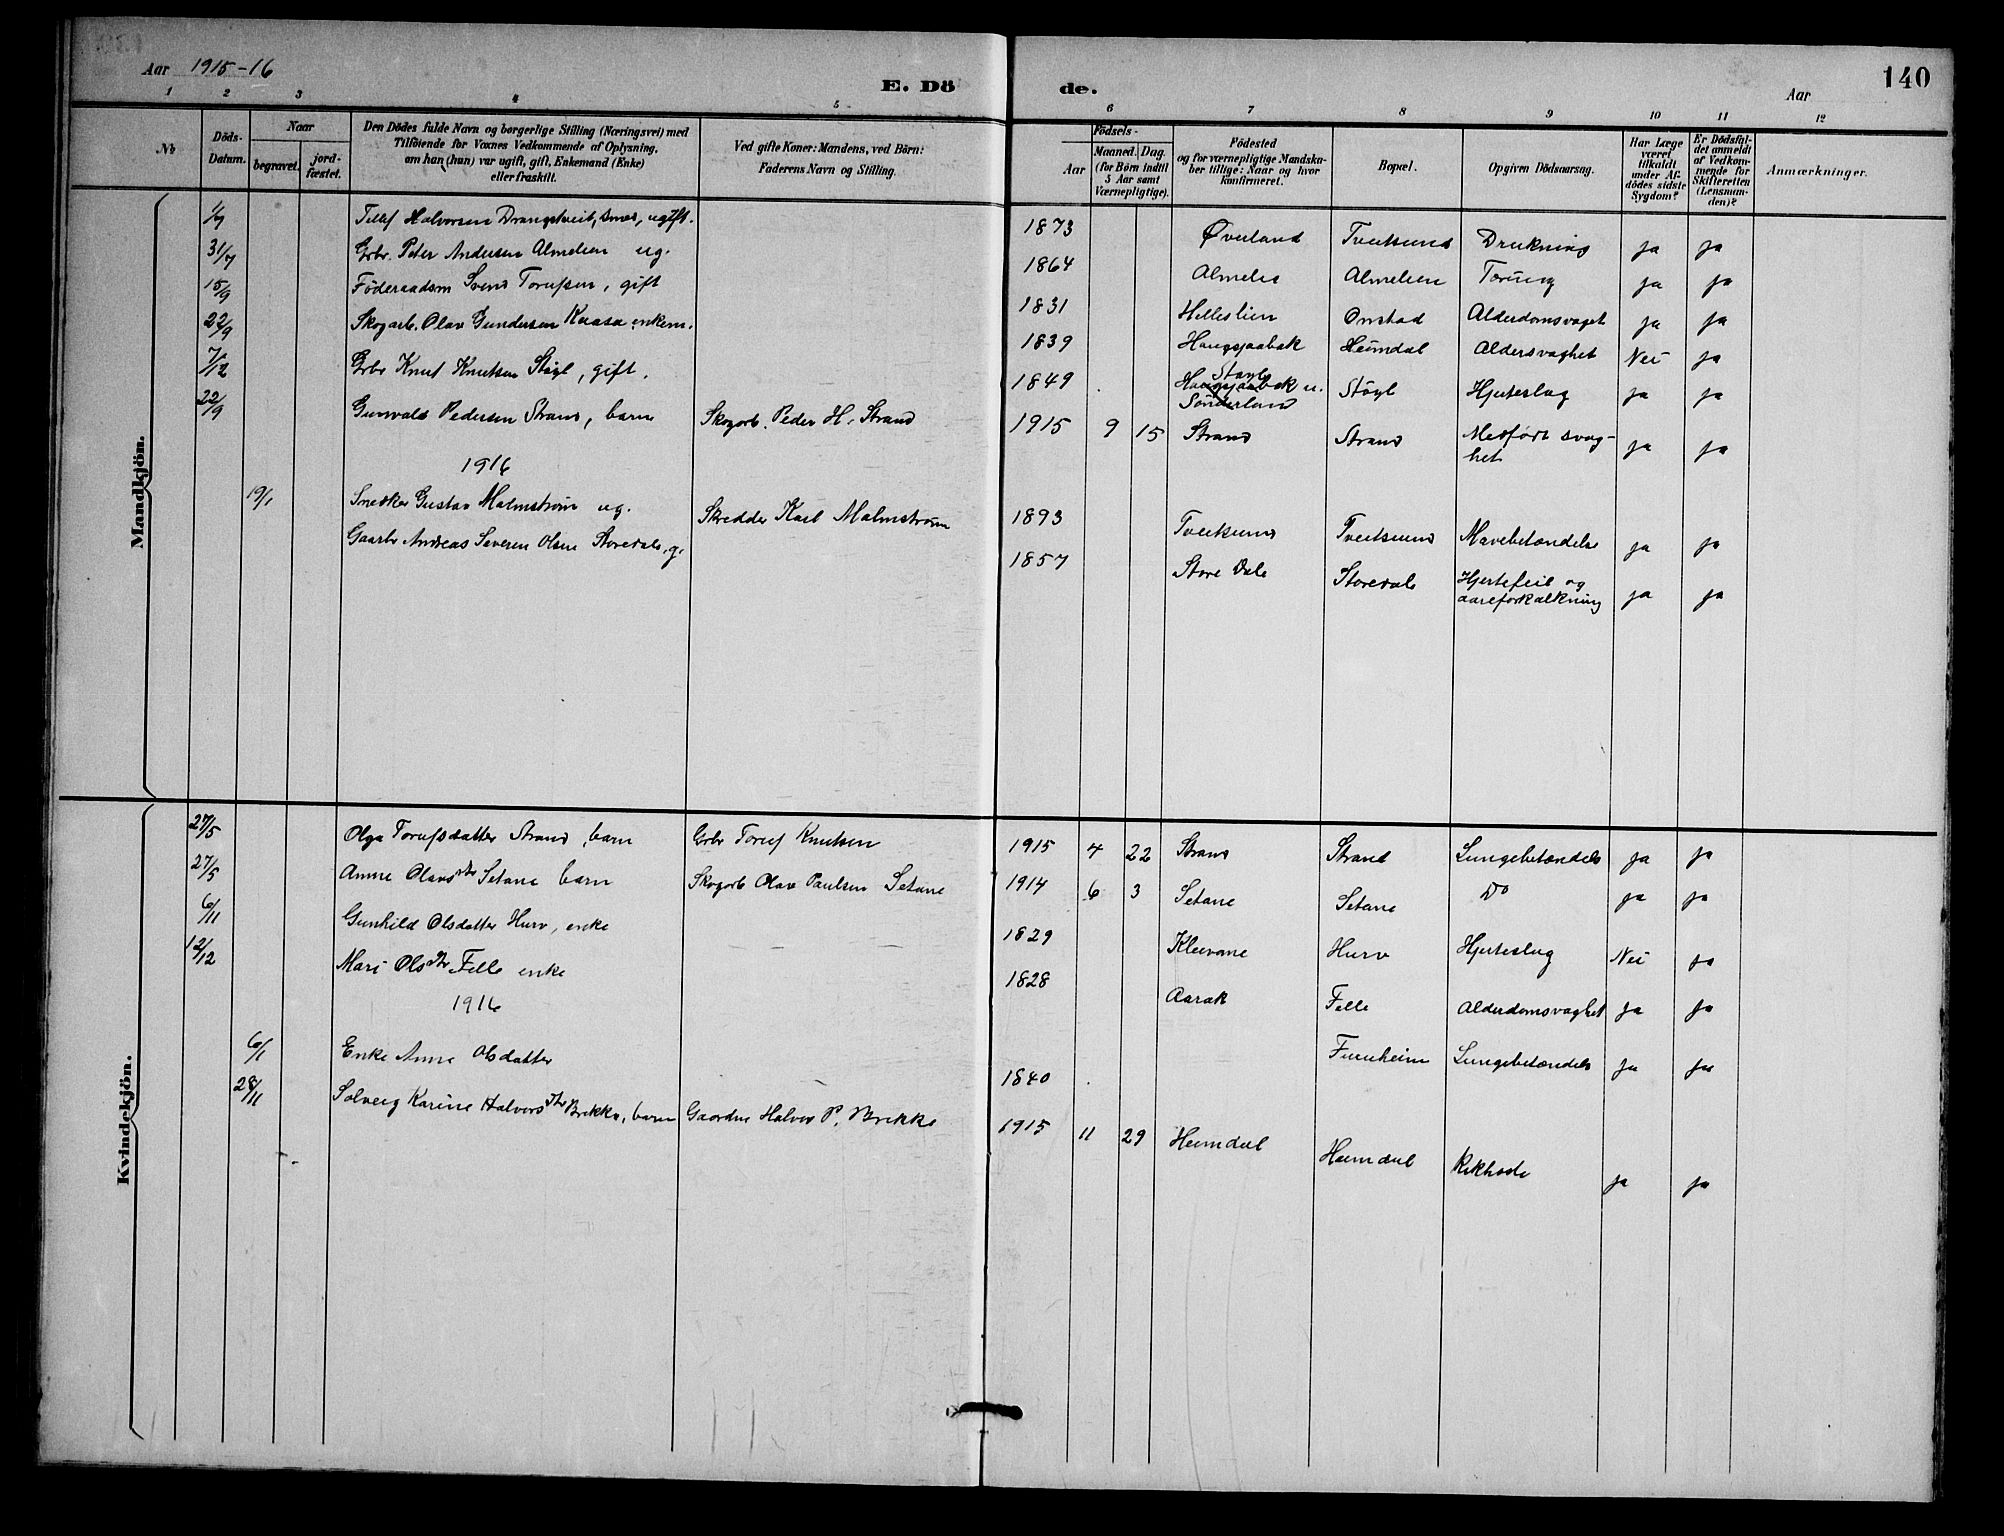 Aar 1915-16
E. Dö
de.
Aar
140
1 2 3 4 5 6 7 8 9 10 11 12
No
Döds-
Datum.
Naar
begravet.
jord-
fæstet.
Den Dödes fulde Navn og borgerlige Stilling (Næringsvei) med
Tilföiende for Voxnes Vedkommende af Oplysning,
om han (hun) var ugift, gift, Enkemand (Enke)
eller fraskilt.
Ved gifte Koner: Mandens, ved Börn:
Faderens Navn og Stilling.
Födsels-
Aar
Maaned. Dag.
(for Börn indtil
5 Aar samt
Værnepligtige).
Födested
og for værnepligtige Mandska-
ber tillige: Naar og hvor
konfirmeret.
Bopæl.
Opgiven Dödsaarsag.
Har Læge
været
tilkaldt
under Af-
dödes sidste
Sygdom?
Er Dödsfal-
det anmeldt
af Vedkom-
mende for
Skifteretten
(Lensman-
den)?
Anmærkninger.
Mandkjön.
Tellef Halvorsen Drangstveit, smed, ugift. 1873 Øverland Tveitsund Drukning ja ja
31/7 Grbr. Peter Andersen Almelien ug. 1864 Almelie Almelien Tæring ja ja
15/9 Föderaadsm Svend Torufsen, gift 1831 Helleslien Onstad Alderdomsvaget ja ja
22/9 Skogarb. Olav Gundersen Kaasa enkem. 1839 Haugsjaabak Heimdal Aldersvaghet Nei ja
7/12 Grbr Knut Knutsen Stöyl, gift. 1849 Stöyl
Haugsjaabak u.
Sönderland Stöyl Hjerteslag ja ja
22/9 Gunvald Pedersen Strand, barn Skogarb. Peder H. Strand 1915 9 15 Strand Strand Medfödt svag-
het ja ja
1916
19/1 Snedker Gustav Malmstrøm ug. Skredder Karl Malmstrøm 1893 Tveitsund Tveitsund Mavebetændelse ja ja
Gaarbr Andreas Severen Olsen Storedale, g. 1857 Store Dale Storedale Hjertefeil og
aareforkalkning ja ja
Kvindekjön.
27/5 Olga Torufsdatter Strand, barn Grbr Toruf Knutsen 1915 4 22 Strand Strand Lungebetændels ja ja
27/5 Anne Olavsdtr Setane barn Skogarb Olav Paulsen Setane 1914 6 3 Setane Setane Do ja ja
6/11 Gunhild Olsdatter Hurv, enke 1829 Kleivane Hurv Hjerteslag Nei ja
12/12 Mari Olsdtr Felle enke 1828 Aarak Felle Alderdomsvaghet ja ja
1916
6/1 Enke Anne Olsdatter 1840 Furuheim Lungebetændels ja ja
28/11 Solveig Karine Halvorsdtr Brekke, barn Gaardbr Halvor P. Brekke 1915 11 29 Heimdal Heimdal Kikhoste ja ja